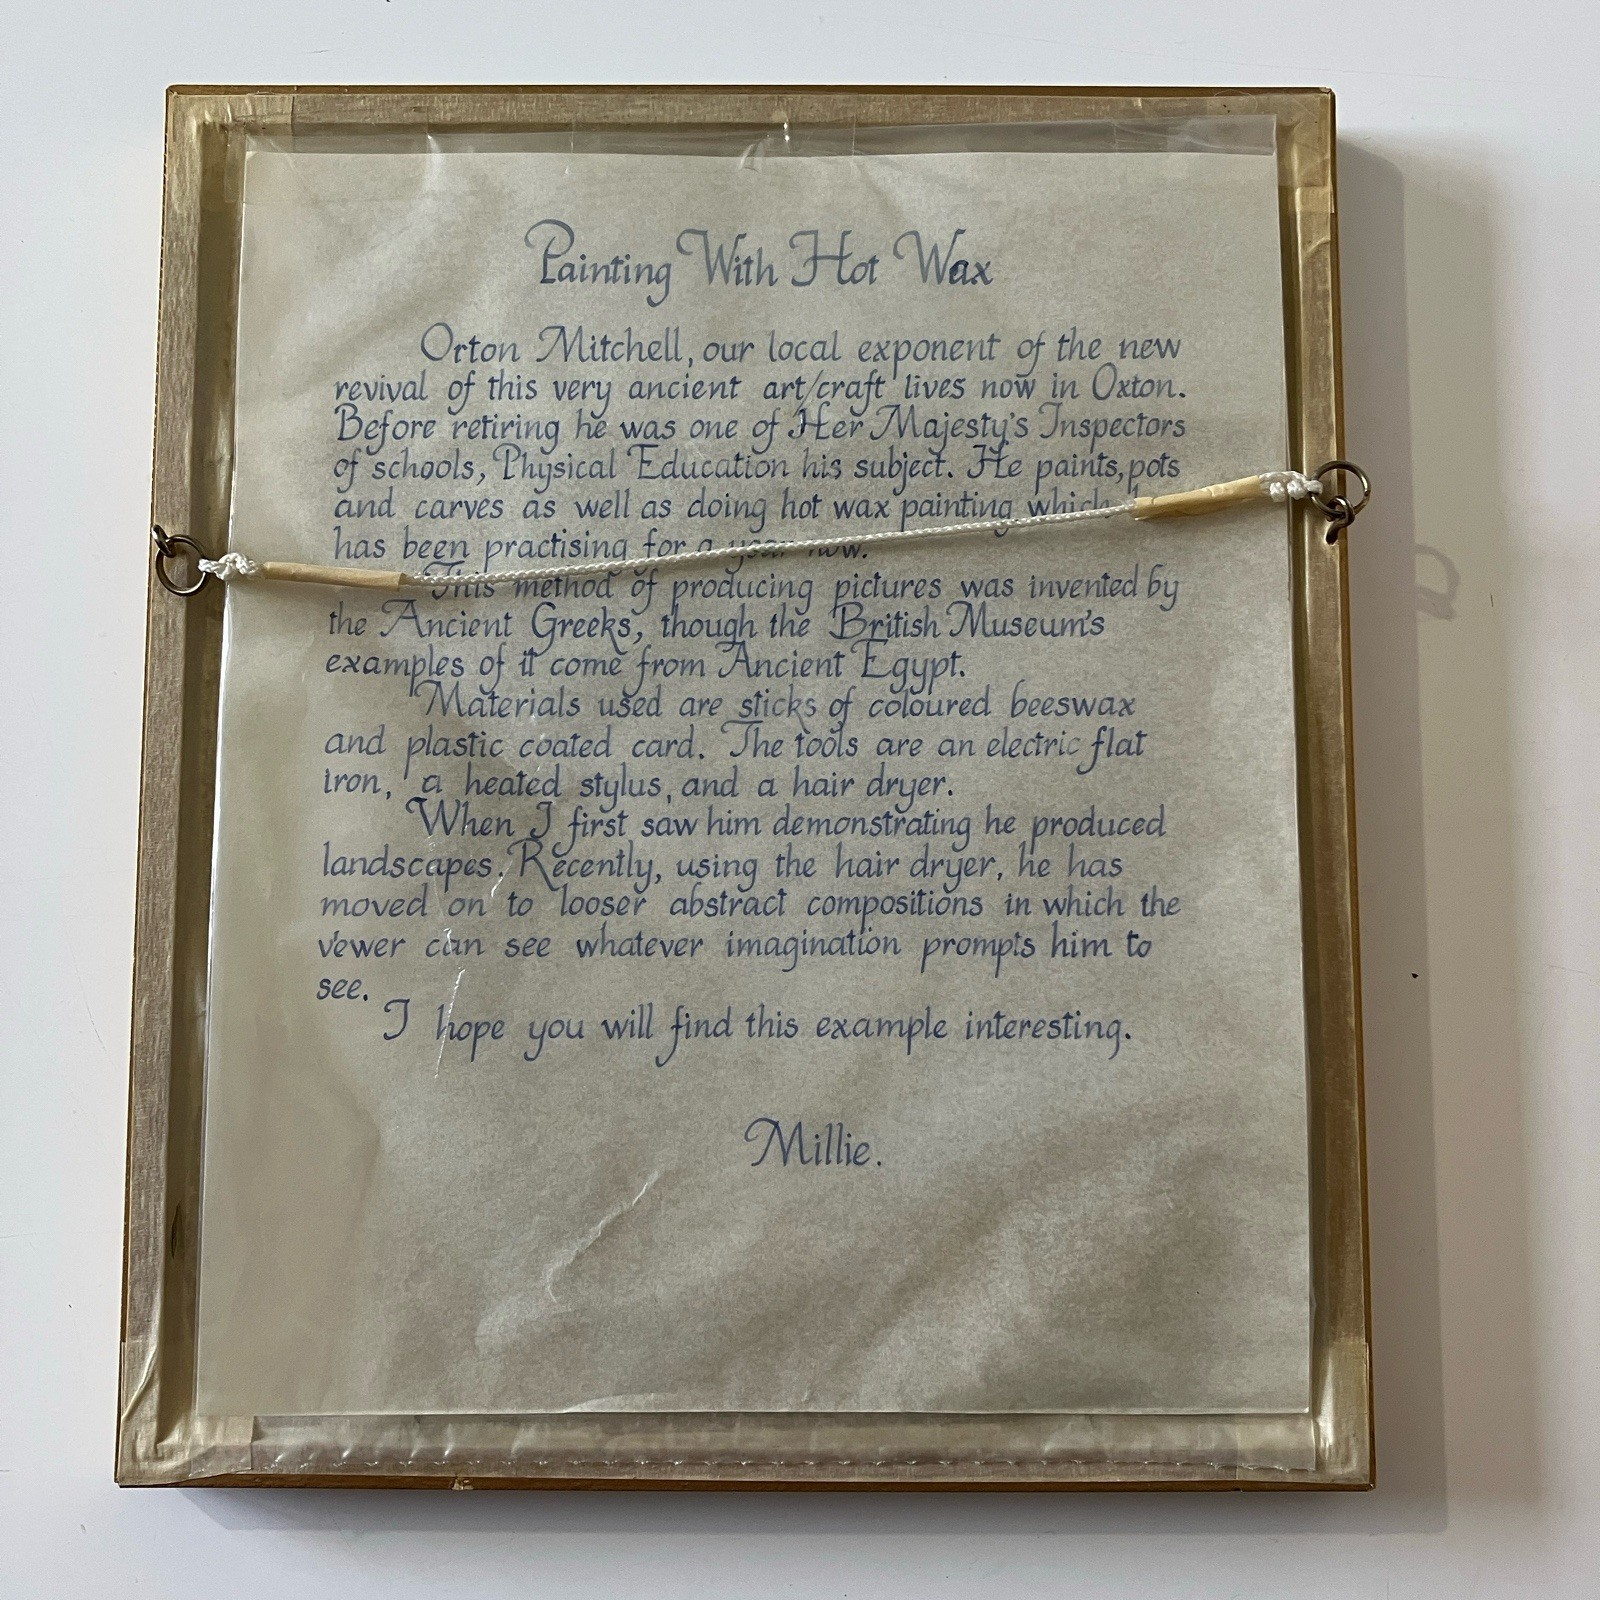 Painting With Hot Wax
Orton Mitchell, our local exponent of the new
revival of this very ancient art/craft lives now in Oxton.
Before retiring he was one of Her Majesty's Inspectors
of schools, Physical Education his subject. He paints, pots
and carves as well as doing hot wax painting which
has been practising for a year now.
This method of producing pictures was invented by
the Ancient Greeks, though the British Museum's
examples of it come from Ancient Egypt.
Materials used are sticks of coloured beeswax
and plastic coated card. The tools are an electric flat
iron, a heated stylus, and a hair dryer.
When I first saw him demonstrating he produced
landscapes. Recently, using the hair dryer, he has
moved on to looser abstract compositions in which the
vewer can see whatever imagination prompts him to
see.
I hope you will find this example interesting.
Millie.